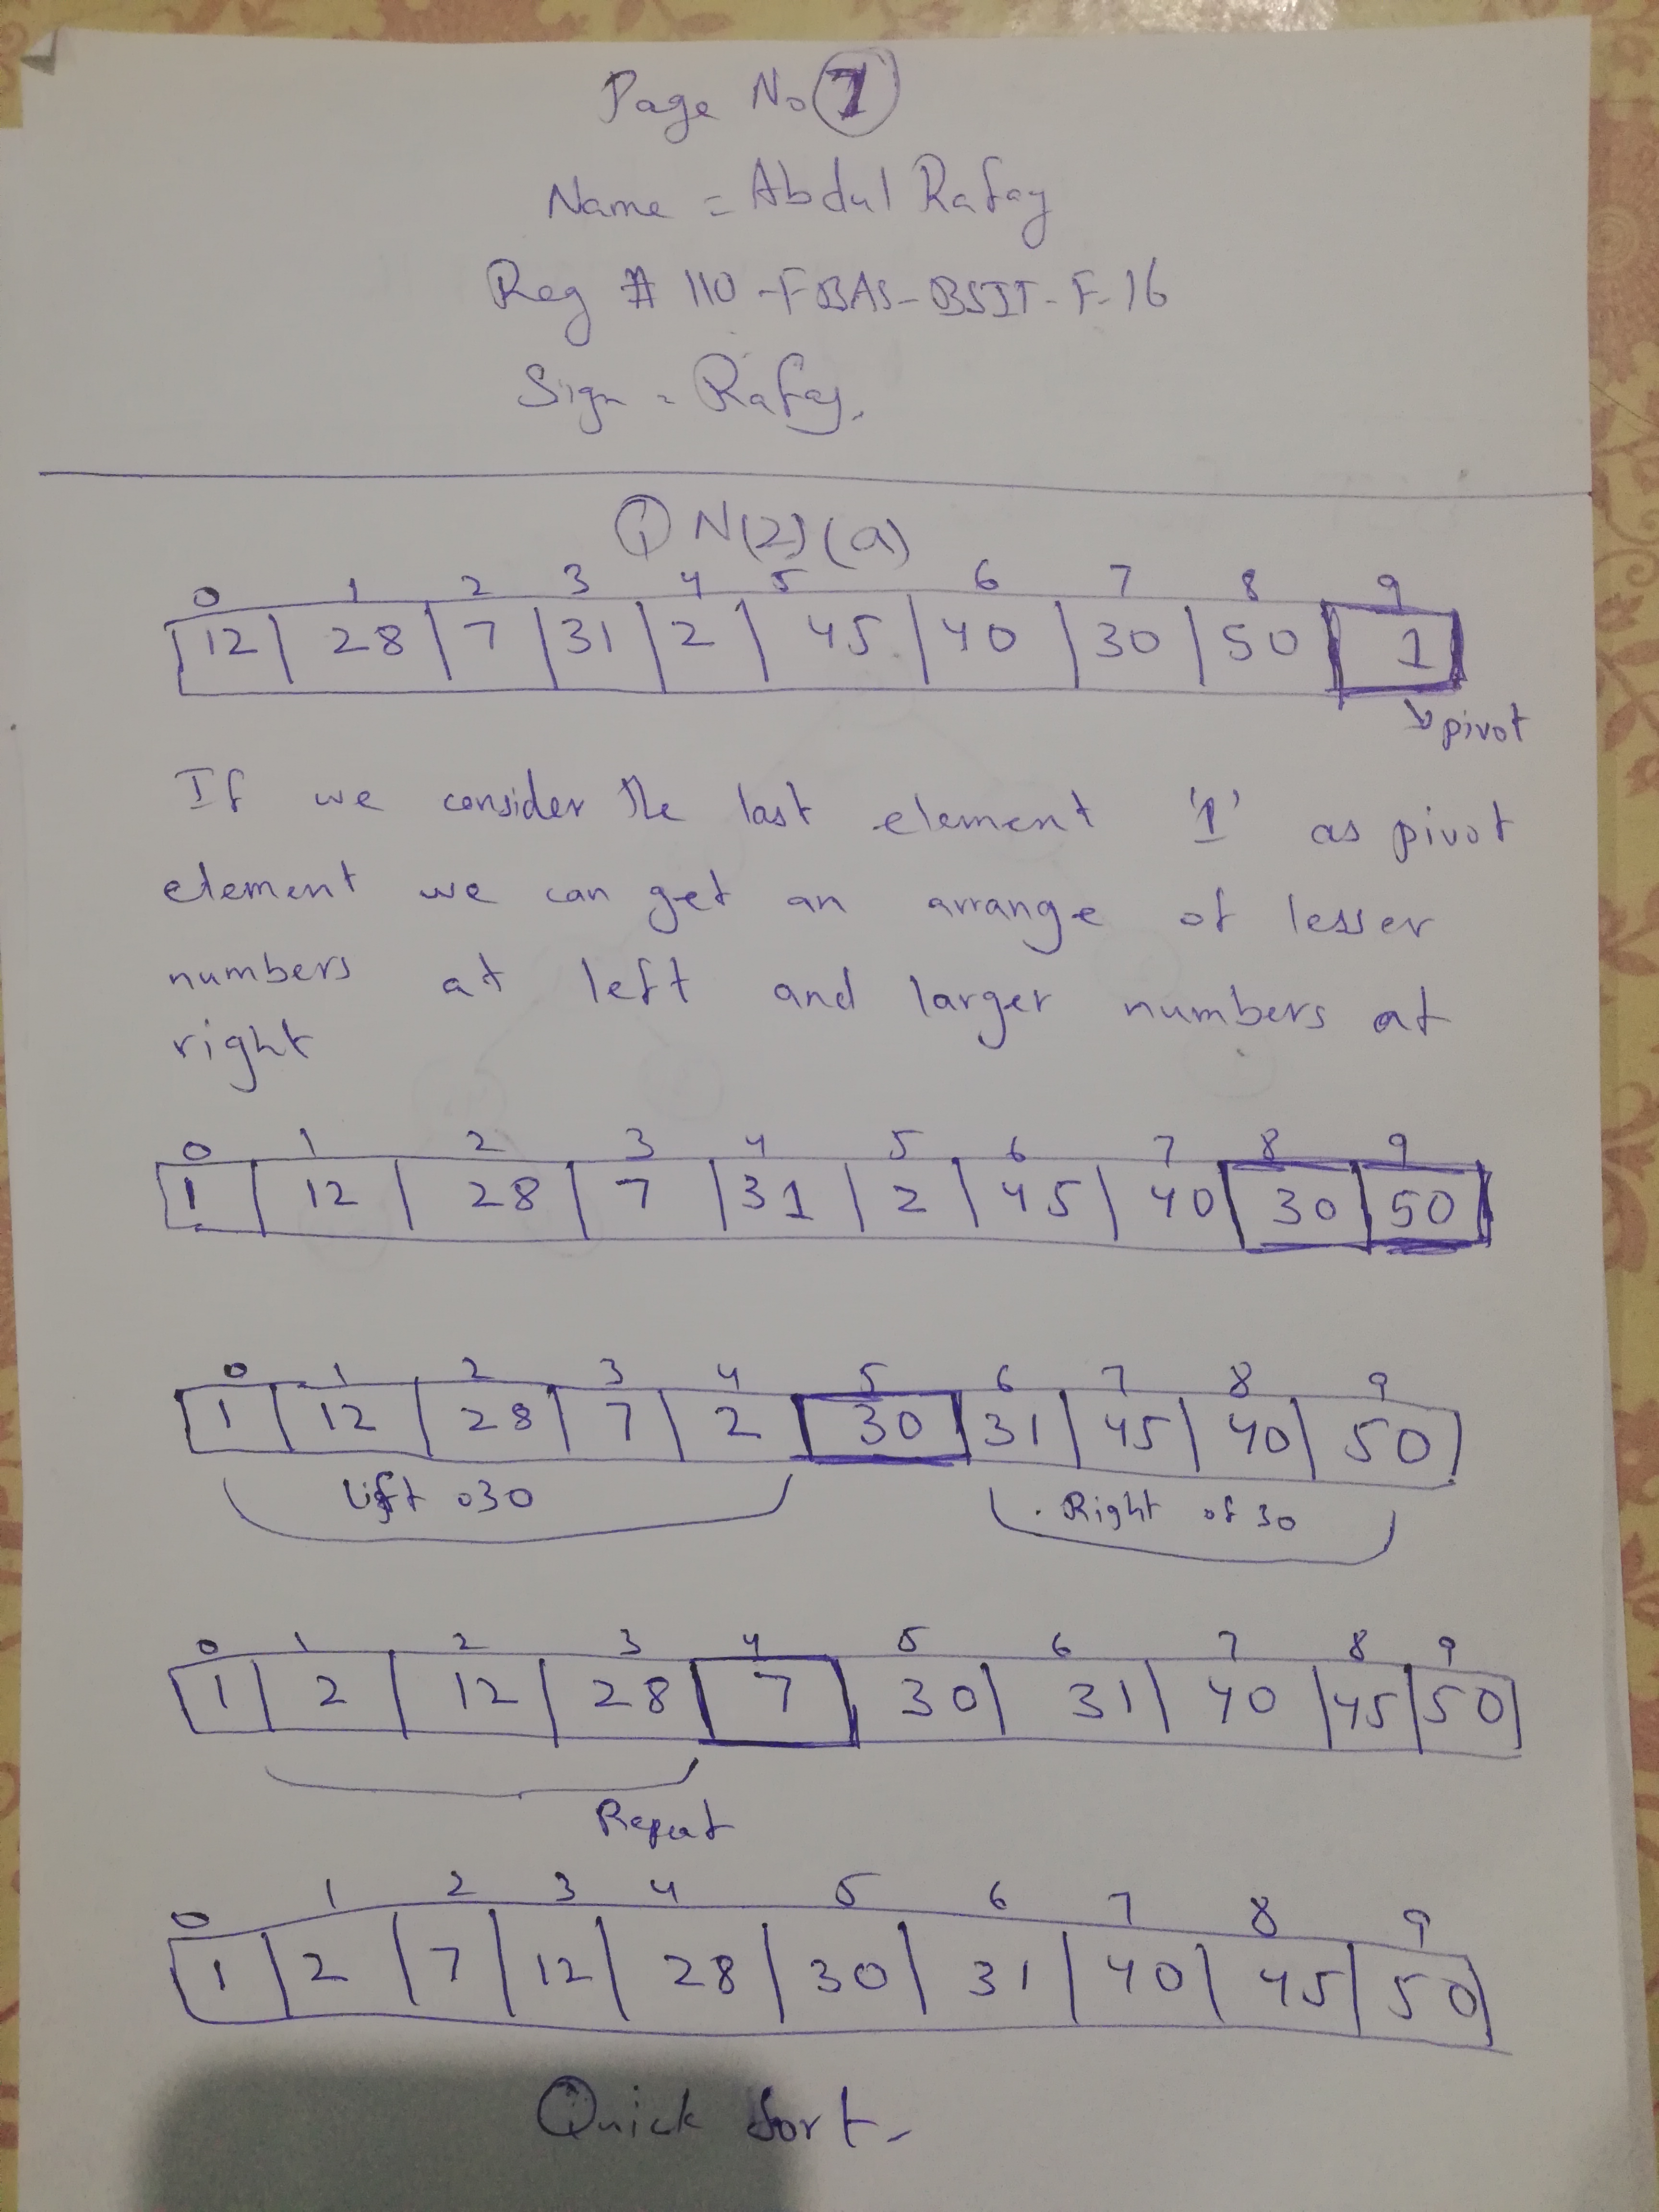 Page No 1
Name = Abdul Rafay
Reg # 110-FBAS-BSIT-F-16
Sign = Rafay.
Q N(2) (a)
0 1 2 3 4 5 6 7 8 9
12 28 7 31 2 45 40 30 50 1
pivot
If we consider the last element '1' as pivot
element we can get an arrange of lesser
numbers at left and larger numbers at
right
0 1 2 3 4 5 6 7 8 9
1 12 28 7 31 2 45 40 30 50
0 1 2 3 4 5 6 7 8 9
1 12 28 7 2 30 31 45 40 50
Left o30 Right of 30
0 1 2 3 4 5 6 7 8 9
1 2 12 28 7 30 31 40 45 50
Repeat
0 1 2 3 4 5 6 7 8 9
1 2 7 12 28 30 31 40 45 50
Quick Sort.